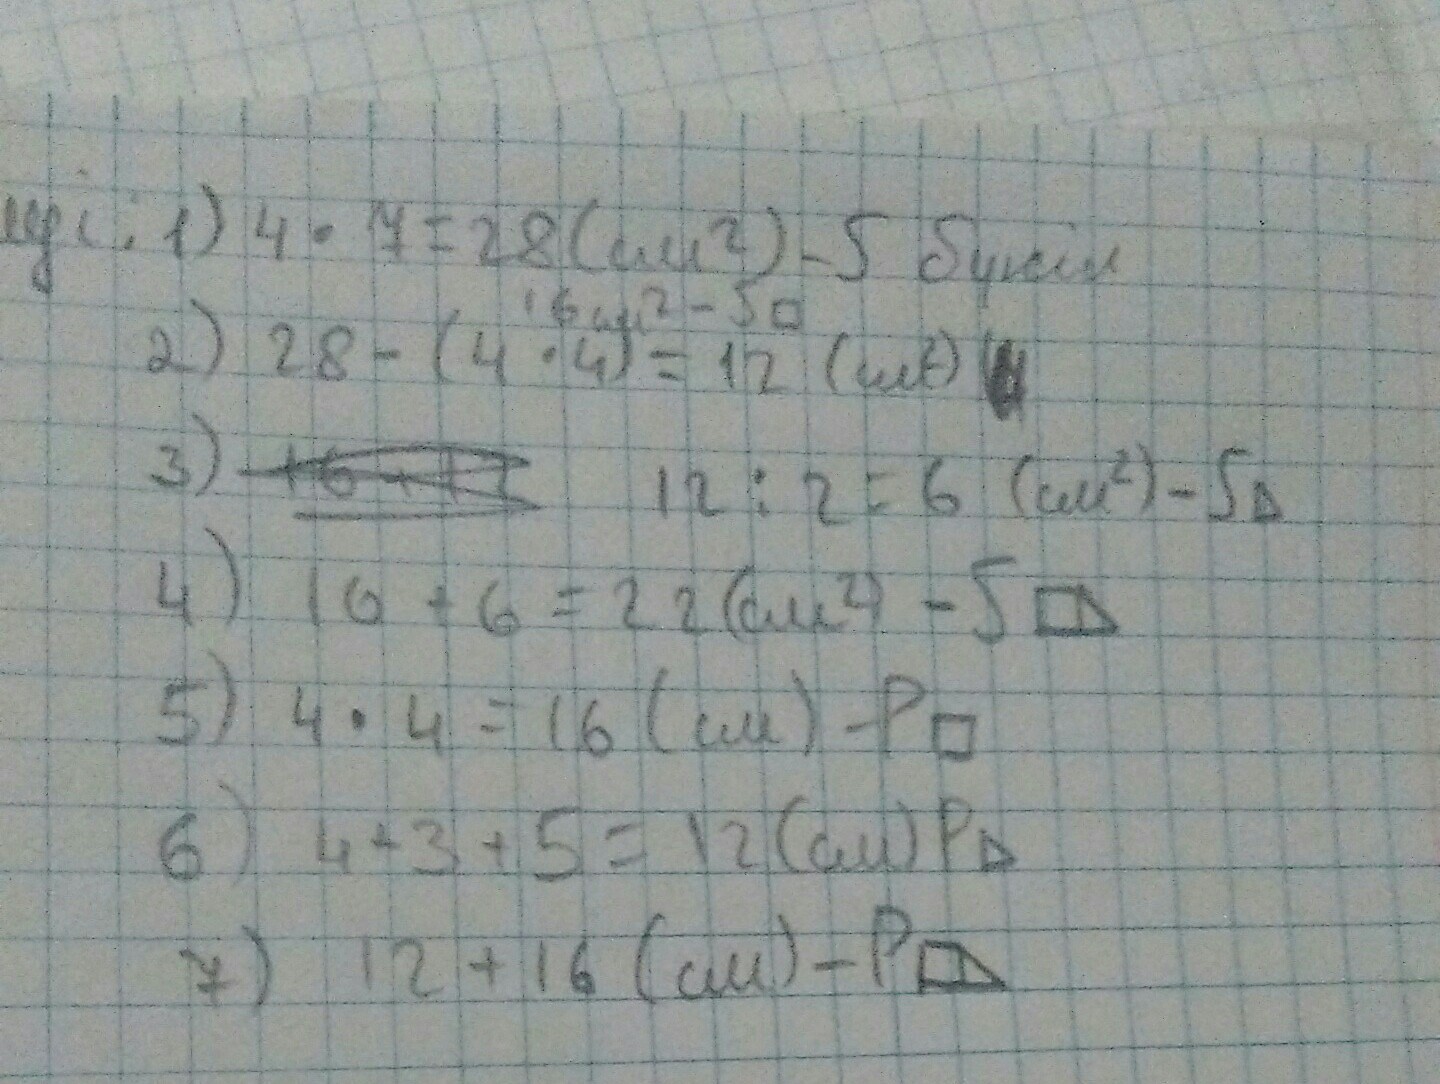 1) 4 · 7 = 28 (см²) - S бүкіл
16 см² - S□
2) 28 - (4 · 4) = 12 (см²)
3) 12 : 2 = 6 (см²) - S△
4) 16 + 6 = 22 (см²) - S
5) 4 · 4 = 16 (см) - P□
6) 4 + 3 + 5 = 12 (см) P△
7) 12 + 16 (см) - P